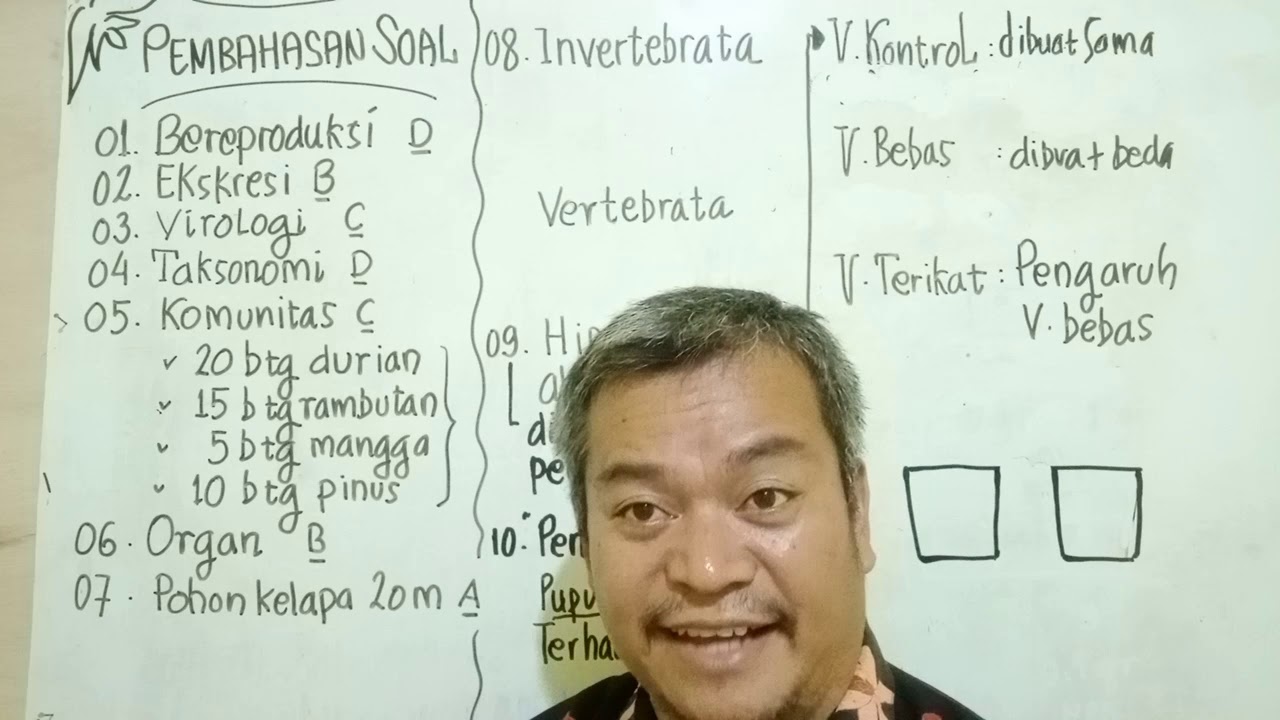 PEMBAHASAN SOAL
01. Bereproduksi D
02. Ekskresi B
03. Virologi C
04. Taksonomi D
05. Komunitas C
20 btg durian
15 btg rambutan
5 btg mangga
10 btg pinus
06. Organ B
07. Pohon kelapa 20m A
08. Invertebrata
Vertebrata
09.
10.
V. Kontrol : dibuat Sama
V. Bebas : dibuat beda
V. Terikat : Pengaruh
V. bebas